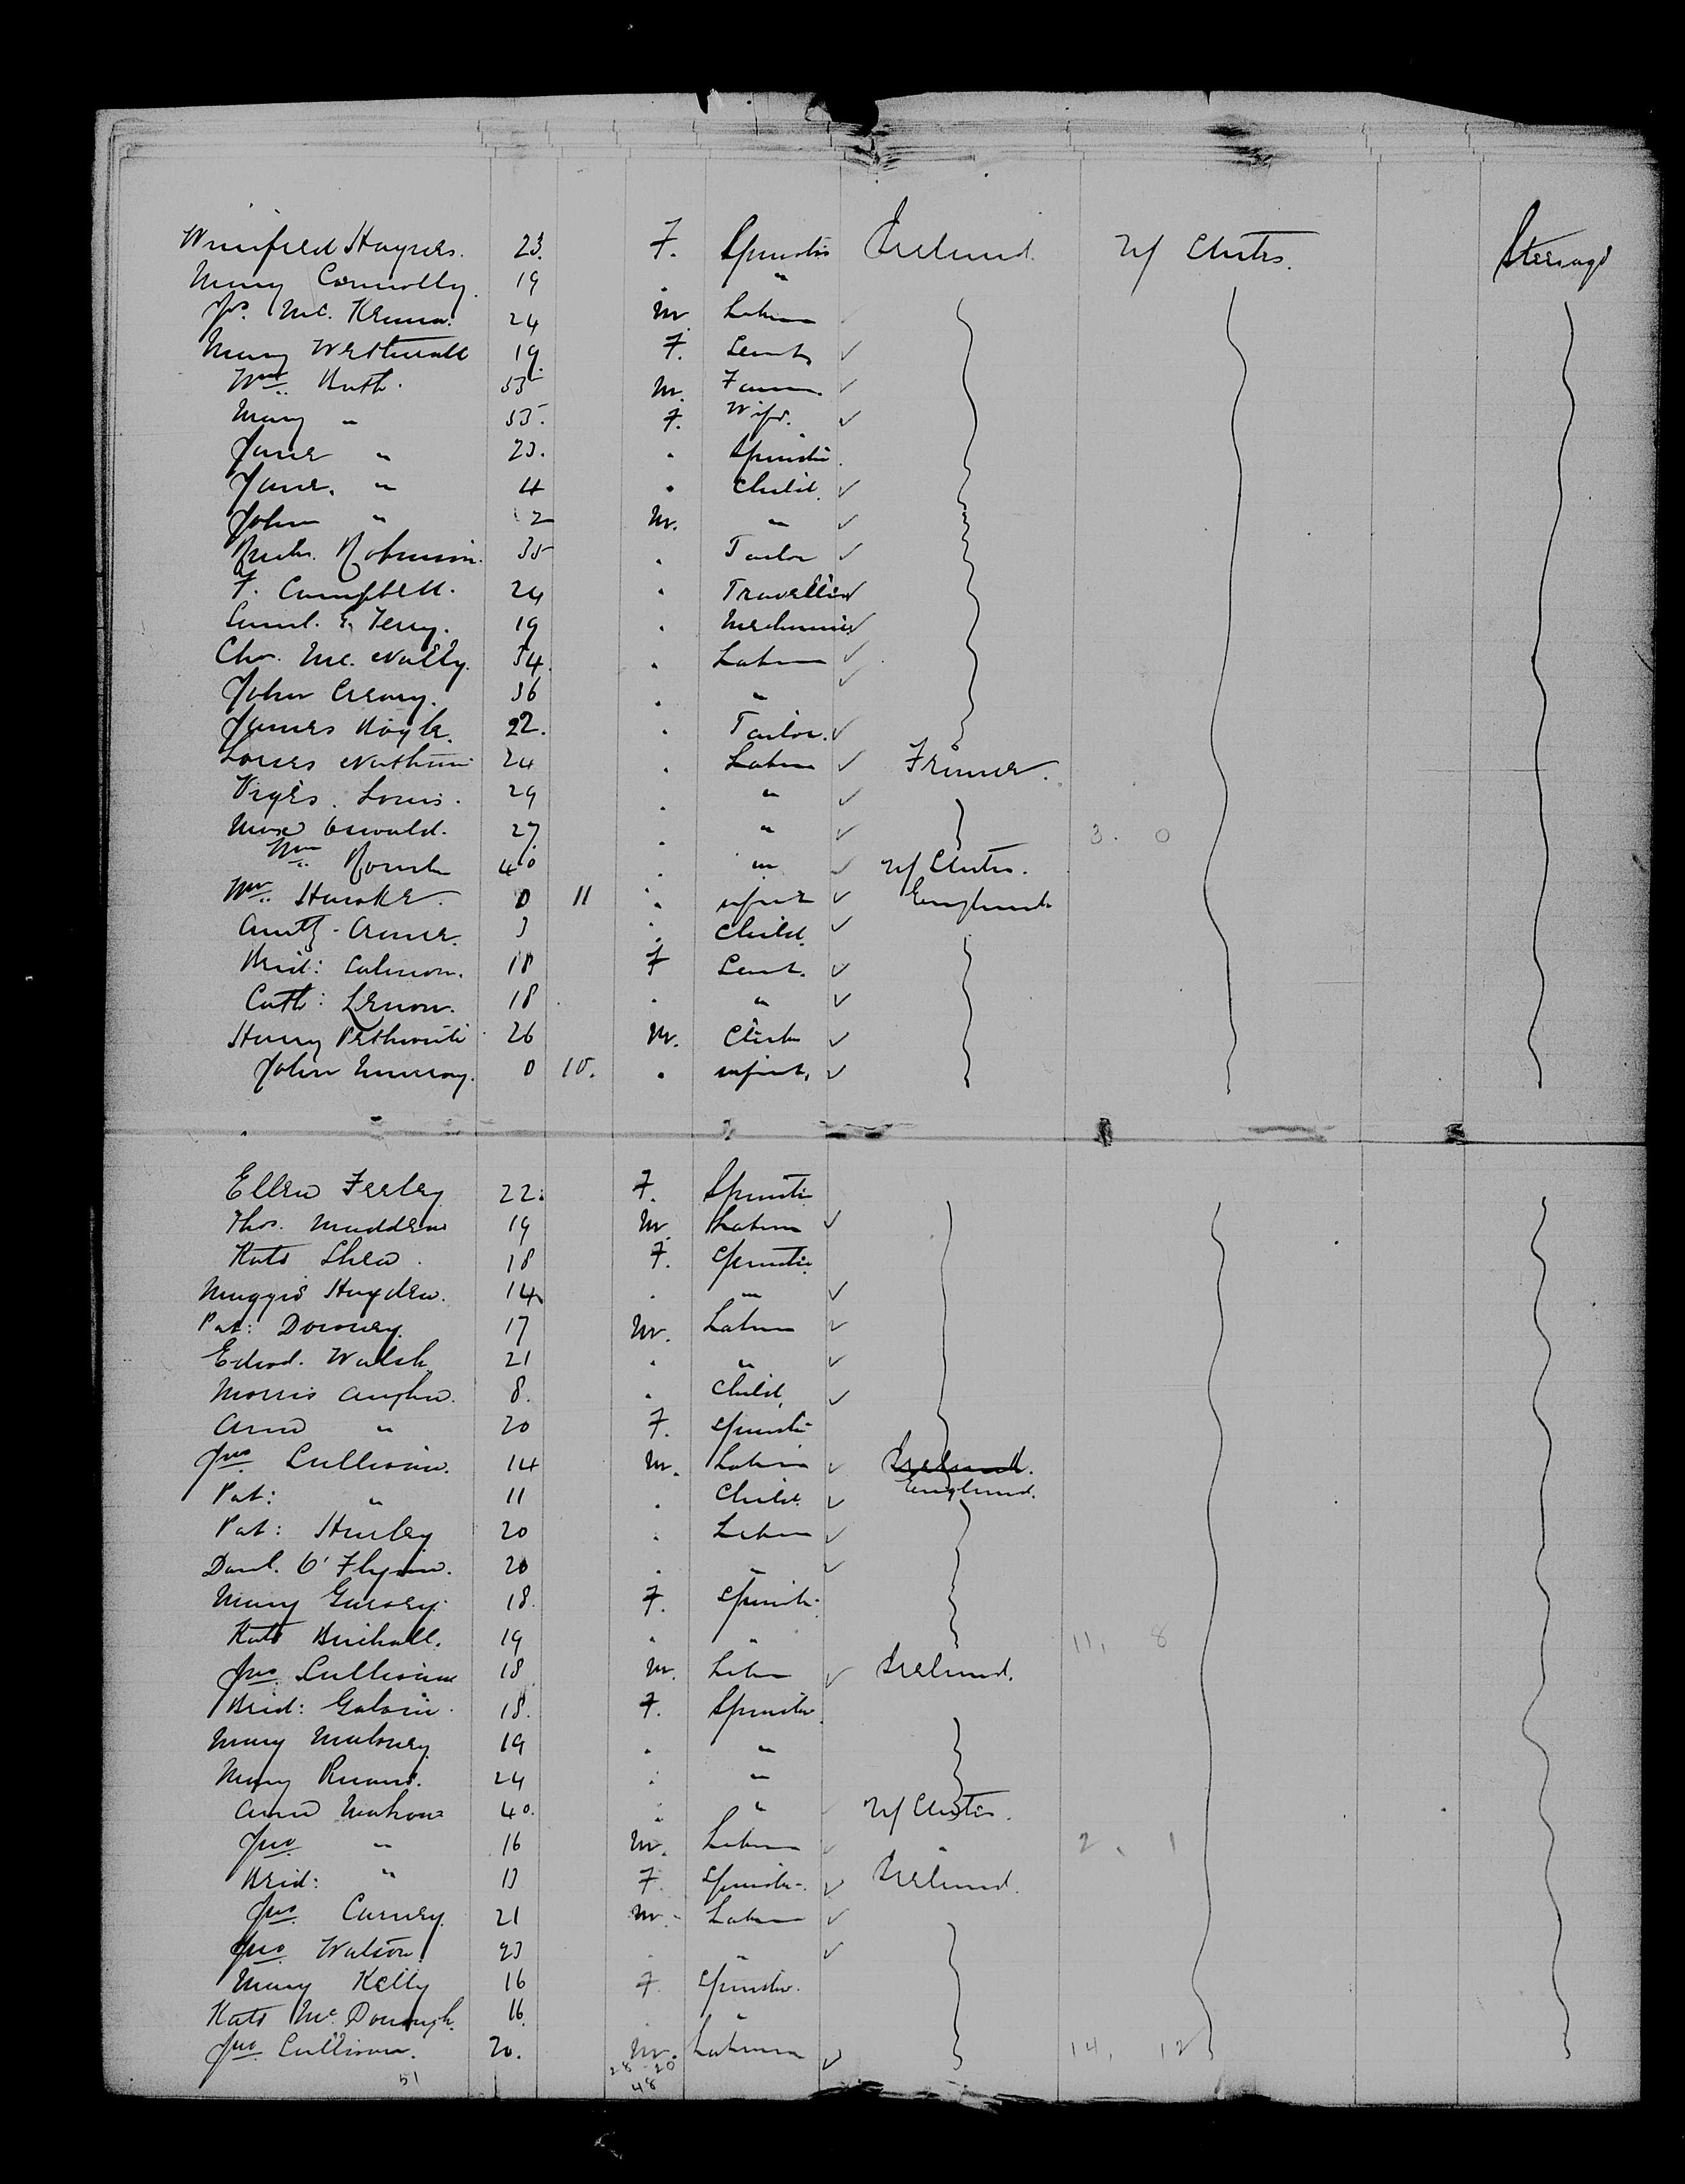 Winifred Haynes. 23. F. Spinster Ireland. U/ States. Steerage
Mary Connolly. 19 . "
Js. Mc. Kenna. 24 M. Labourer
Mary Westmall 19. F. Servt
Wm. 55 M. Farmer
Mary " 55. F. Wife.
Jane " 23. . Spinster
Jane. " 4 . Child.
John " 2 M. "
Robinson. 35 . Tailor
F. Campbell. 24 . Traveller
Saml. E. Terry. 19 . Mechanic
Chs. Mc. Nally. 54. . Labourer
John Creary. 36 . "
James 22. . Tailor.
Louis Nathan 24 . Labourer France.
Louis. 29 . "
Oswald. 27. . " 3. 0
Wm. Rourke 40 . " U/ States.
Wm. 0 11 . infant England
3 . Child.
Brid: 18 F Servt.
Cath: Lenon. 18 . "
Henry 26 M. Clerk
John Murray. 0 10. . infant.
Ellen Feeley 22. F. Spinster
Thos. Madden 19 M. Labourer
Kate Shea. 18 F. Spinster
Maggie Hayden. 14 . "
Pat: Downey. 17 M. Labourer
Edwd. Walsh 21 . "
Morris 8. . Child.
Ann " 20 F. Spinster
Jno. Sullivan. 14 M. Labourer Ireland.
England.
Pat: " 11 . Child.
Pat: Hurley 20 . Labourer
Danl. O'Flynn. 20 . "
Mary Garvey. 18. F. Spinster
Kate Birchall. 19 . " 11, 8
Jno. Sullivan 18 M. Labr Ireland.
Brid: Galvin. 18. F. Spinster
Mary Maloney 19 . "
Mary Ruane. 24 . "
Ann Mahon 40. . " U/ States.
Jno. " 16 M. Labourer " 2, 1
Brid: " 13 F. Spinster. Ireland.
Jno. Carney. 21 M. Labourer
Jno. Watson 23 . "
Mary Kelly 16 F. Spinster.
Kate Mc. Donough. 16. . "
Jno. Sullivan. 20. M. Labourer 14, 12
51 28 20
48